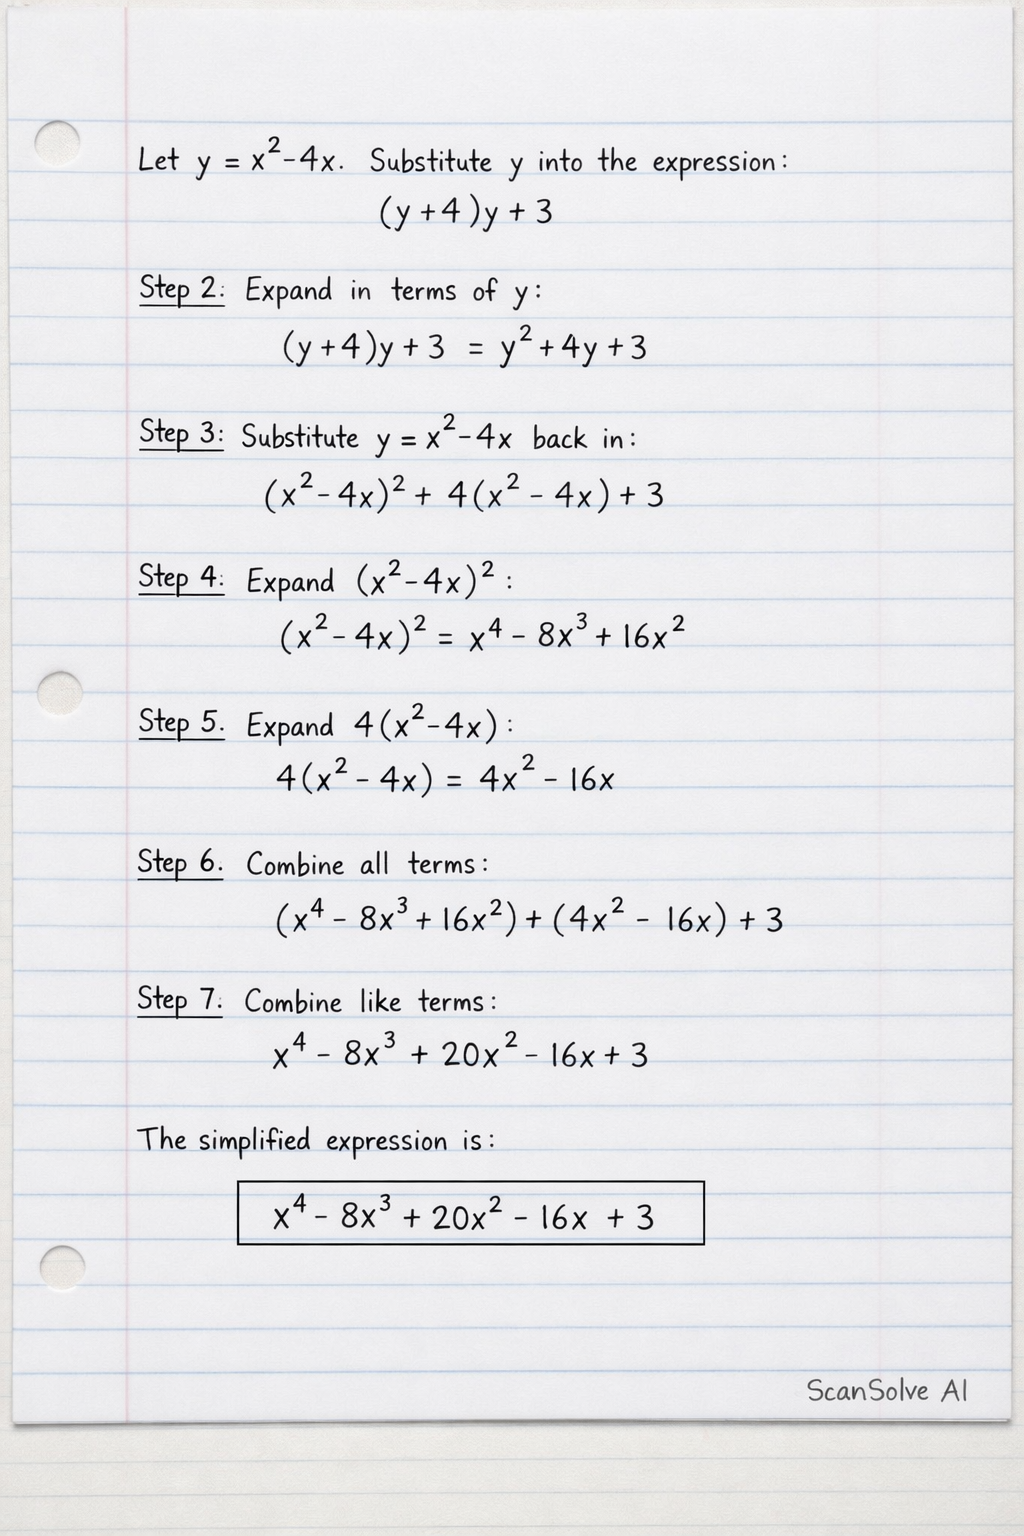 Let y = x²-4x. Substitute y into the expression:
(y+4)y + 3
Step 2: Expand in terms of y:
(y+4)y + 3 = y² + 4y + 3
Step 3: Substitute y = x²-4x back in:
(x² - 4x)² + 4(x² - 4x) + 3
Step 4: Expand (x²-4x)² :
(x² - 4x)² = x⁴ - 8x³ + 16x²
Step 5. Expand 4(x²-4x) :
4(x² - 4x) = 4x² - 16x
Step 6. Combine all terms:
(x⁴ - 8x³ + 16x²) + (4x² - 16x) + 3
Step 7. Combine like terms:
x⁴ - 8x³ + 20x² - 16x + 3
The simplified expression is:
x⁴ - 8x³ + 20x² - 16x + 3
ScanSolve AI